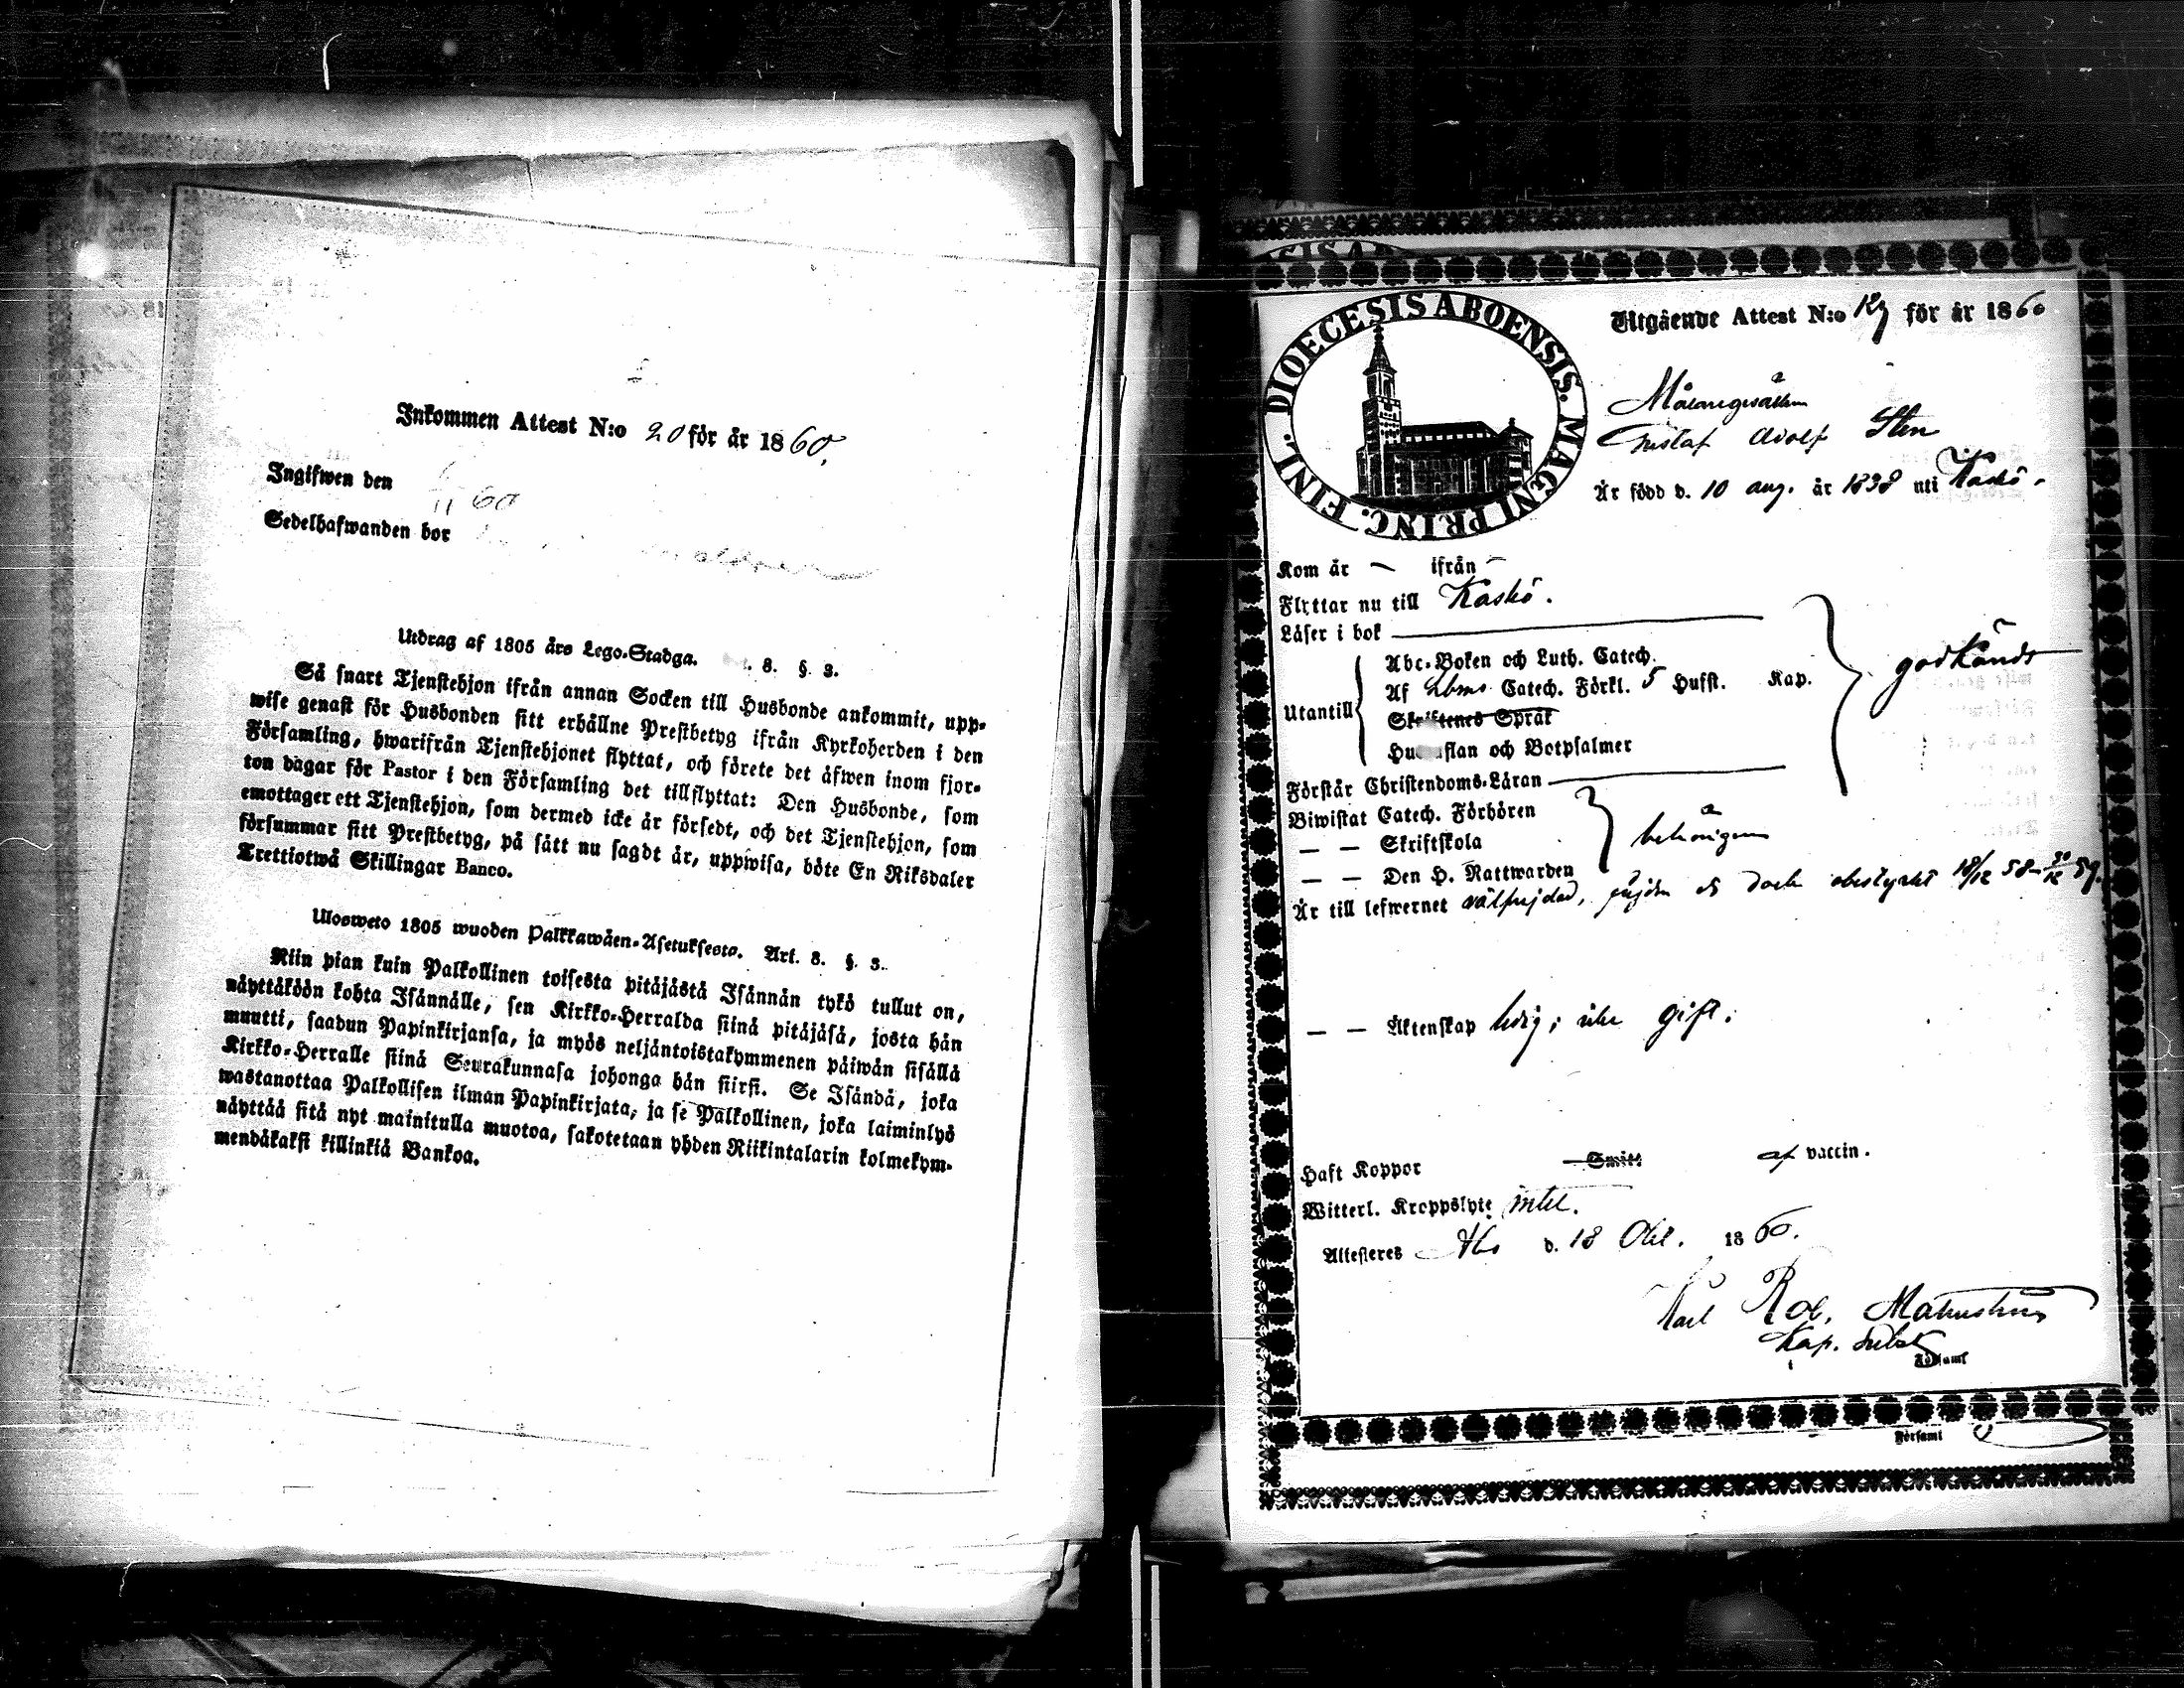 Inkommen Attest N:o 20 för år 1860.
Ingifwen den 11 60
Sedelhafwanden bor
Utdrag af 1805 års Lego-Stadga. 8. §. 3.
Så snart Tjenstehjon ifrån annan Socken till Husbonde ankommit, upp-
wise genast för Husbonden sitt erhållne Prestbetyg ifrån Kyrkoherden i den
Församling, hwarifrån Tjenstehjonet flyttat, och förete det äfwen inom fjor-
ton dagar för Pastor i den Församling det tillflyttat: Den Husbonde, som
emottager ett Tjenstehjon, som dermed icke är försedt, och det Tjenstehjon, som
försummar sitt Prestbetyg, på sätt nu sagdt är, uppwisa, böte En Riksdaler
Trettiotwå Skillingar Banco.
Ulosweto 1805 wuoden Palkkawäen-Asetuksesta. Art. 8. §. 3.
Niin pian kuin Palkollinen toisesta pitäjästä Isännän tykö tullut on,
näyttäköön kohta Isännälle, sen Kirkko-Herralda siinä pitäjäsä, josta hän
muutti, saadun Papinkirjansa, ja myös neljäntoistakymmenen päiwän sisällä
Kirkko-Herralle siinä Seurakunnasa johonga hän siirsi. Se Isändä, joka
wastanottaa Palkollisen ilman Papinkirjata, ja se Palkollinen, joka laiminlyö
näyttää sitä nyt mainitulla muotoa, sakotetaan yhden Riikintalarin kolmekym-
mendäkaksi killinkiä Bankoa.
DIOECESIS ABOENSIS. MAGNI PRINC. FINL.
Utgående Attest N:o för år 1860
Målaregesällen
Gustaf Adolf Sten
Är född d. 10 aug. år 1838 uti Kaskö.
Kom år – ifrån –
Flyttar nu till Kaskö.
Läser i bok
Utantill
Abc-Boken och Luth. Catech.
Af Catech. Förkl. 5 Hufst. Kap.
Skriftenes Språk
Hustaflan och Botpsalmer
godkändt
Förstår Christendoms-Läran
Biwistat Catech. Förhören
— — Skriftskola
— — Den H. Nattwarden
behörigen
Är till lefwernet välfrejdad, frejden är dock obestyrkt 18/12 58–30/12 59.
— — Äktenskap ledig; icke gift.
Haft Koppor Smitt af vaccin.
Witterl. Kroppslyte intet.
Attesteres Åbo d. 18 Okt. 1860.
Karl Rob. Malmström
Kap. Subst
Församl
Församl